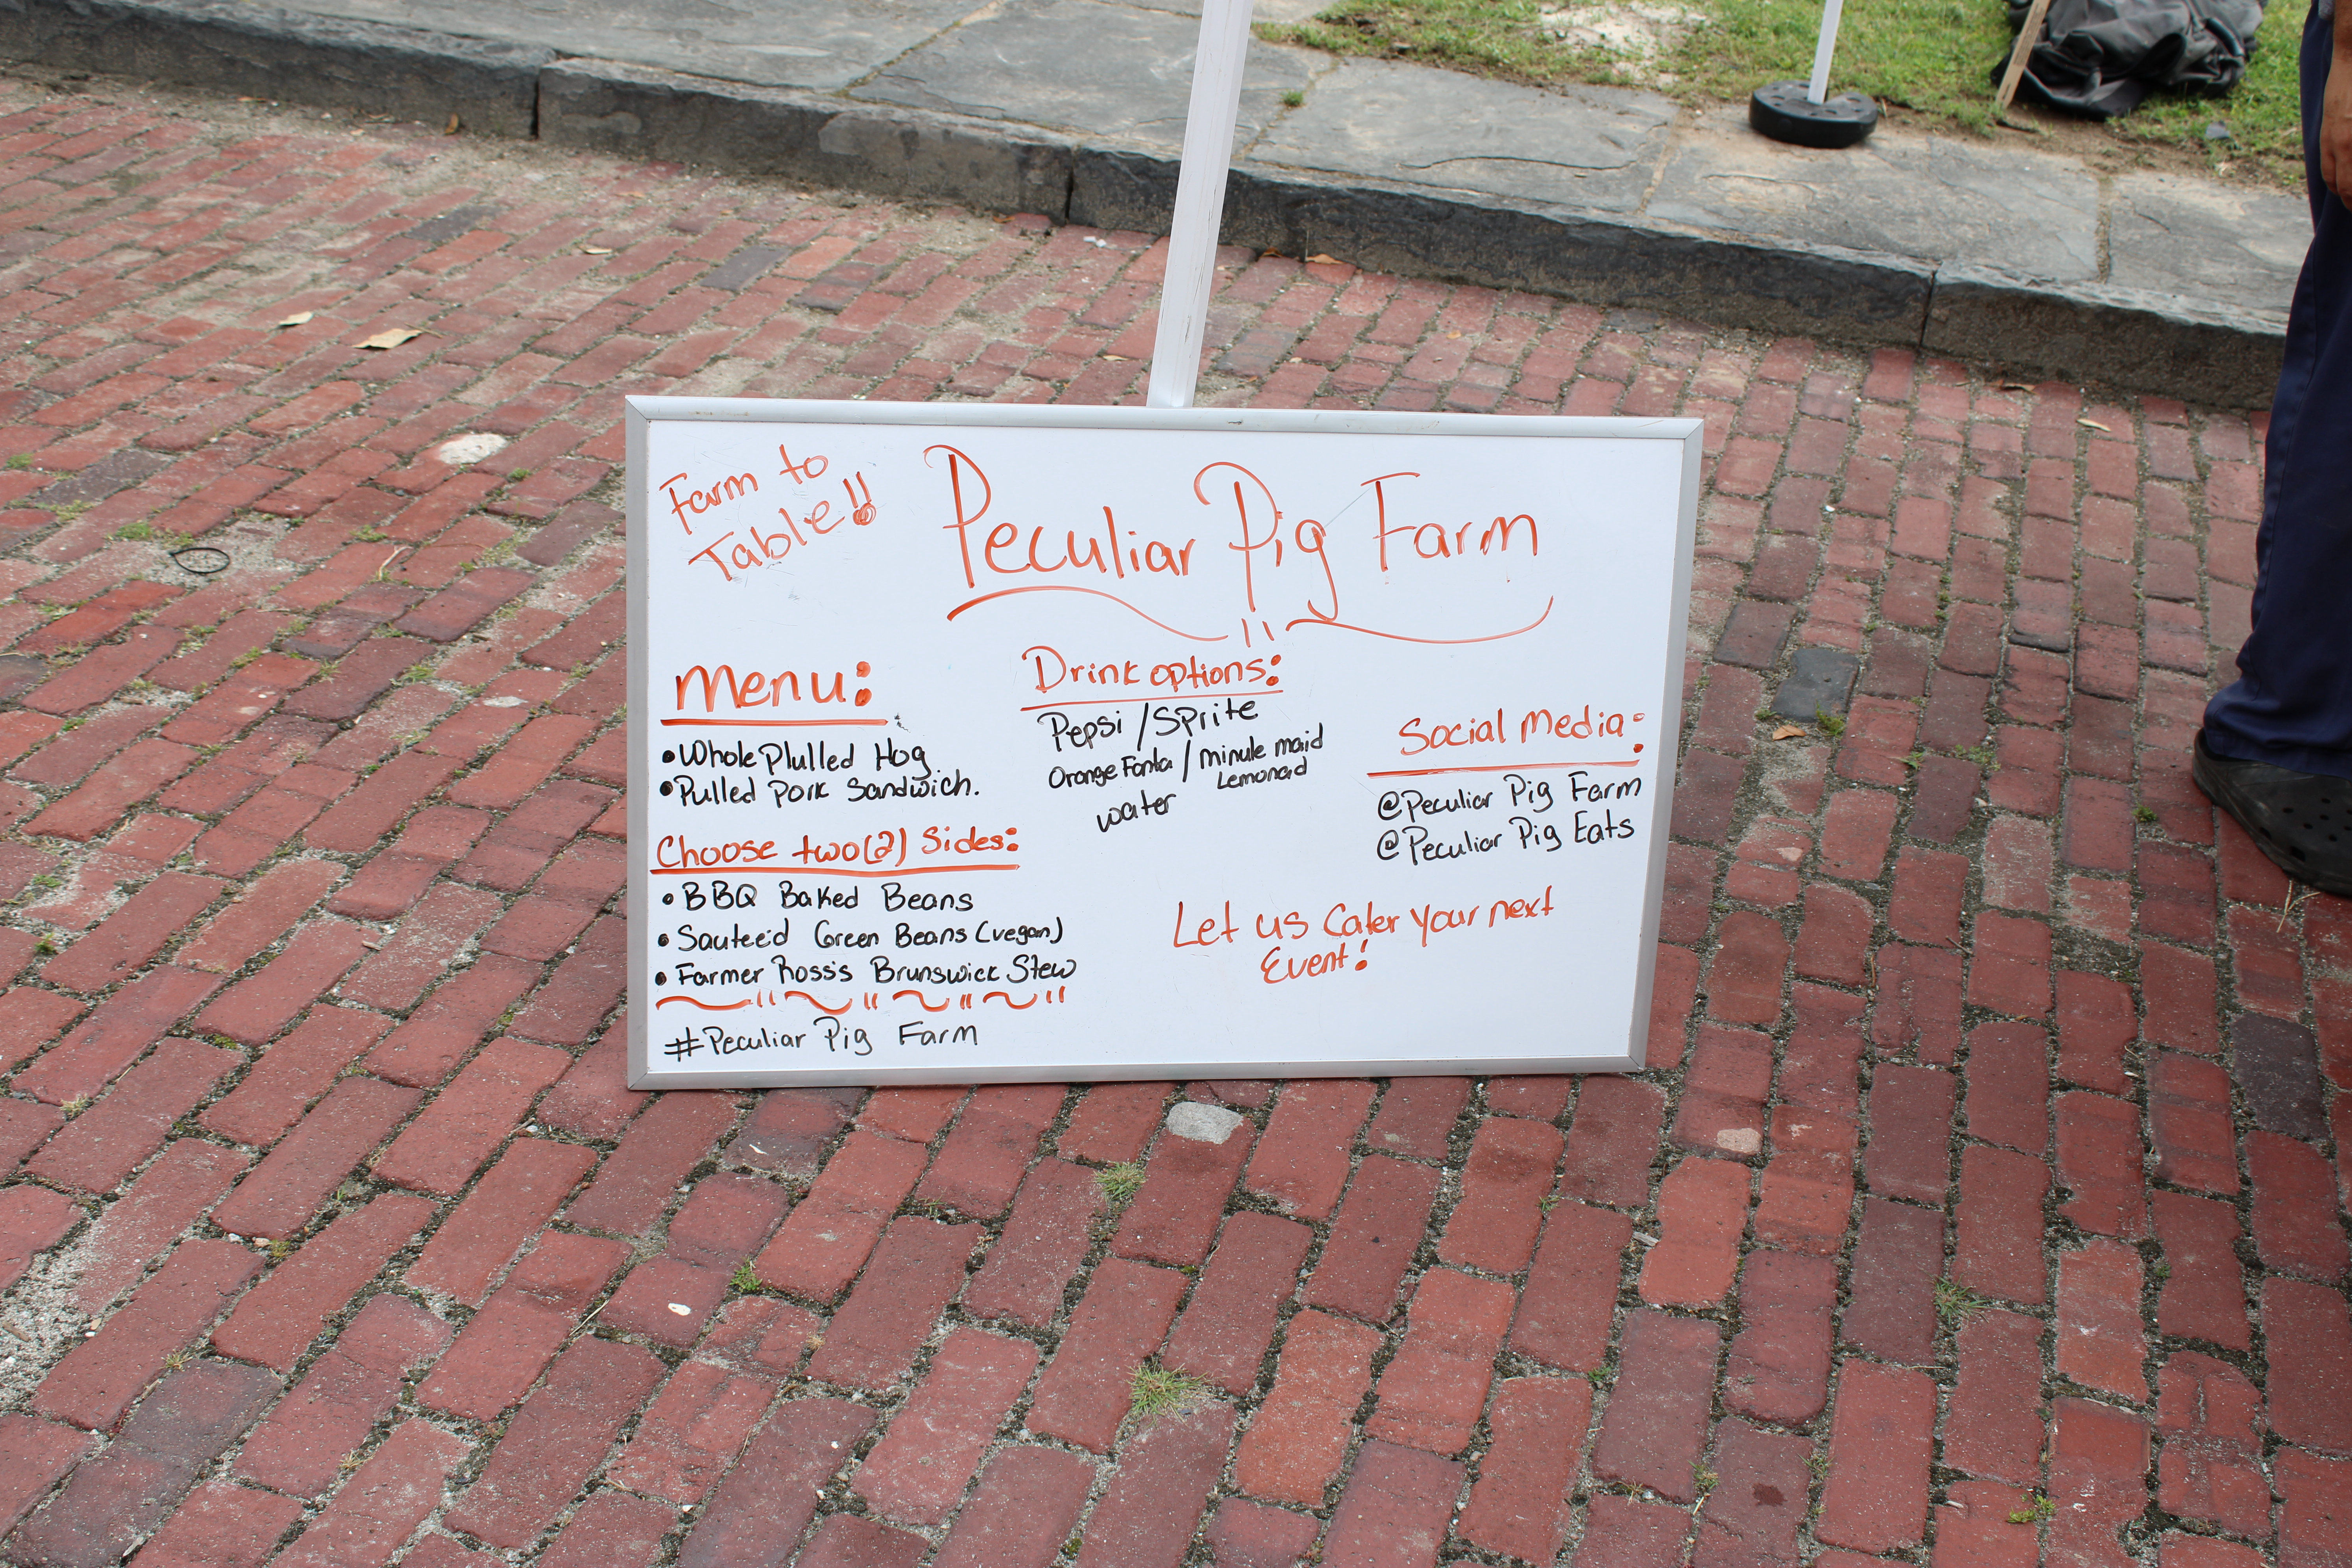 Farm to
Table!!
Peculiar Pig Farm
Menu:
• Whole Plulled Hog
• Pulled Pork Sandwich.
Choose two(2) Sides:
• BBQ Baked Beans
• Sautee'd Green Beans (vegan)
• Farmer Ross's Brunswick Stew
#Peculiar Pig Farm
Drink options:
Pepsi / Sprite
Orange Fanta / minute maid
Lemonad
water
Social Media:
@Peculiar Pig Farm
@Peculiar Pig Eats
Let us Cater your next
Event!